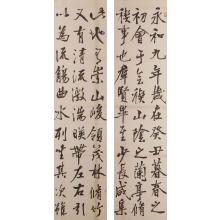 永和九年歲在癸丑暮春之
初會于會稽山陰之蘭亭脩
禊事也群賢畢至少長咸集
此地有崇山峻領茂林脩竹
又有清流激湍暎帶左右引
以為流觴曲水列坐其次雖